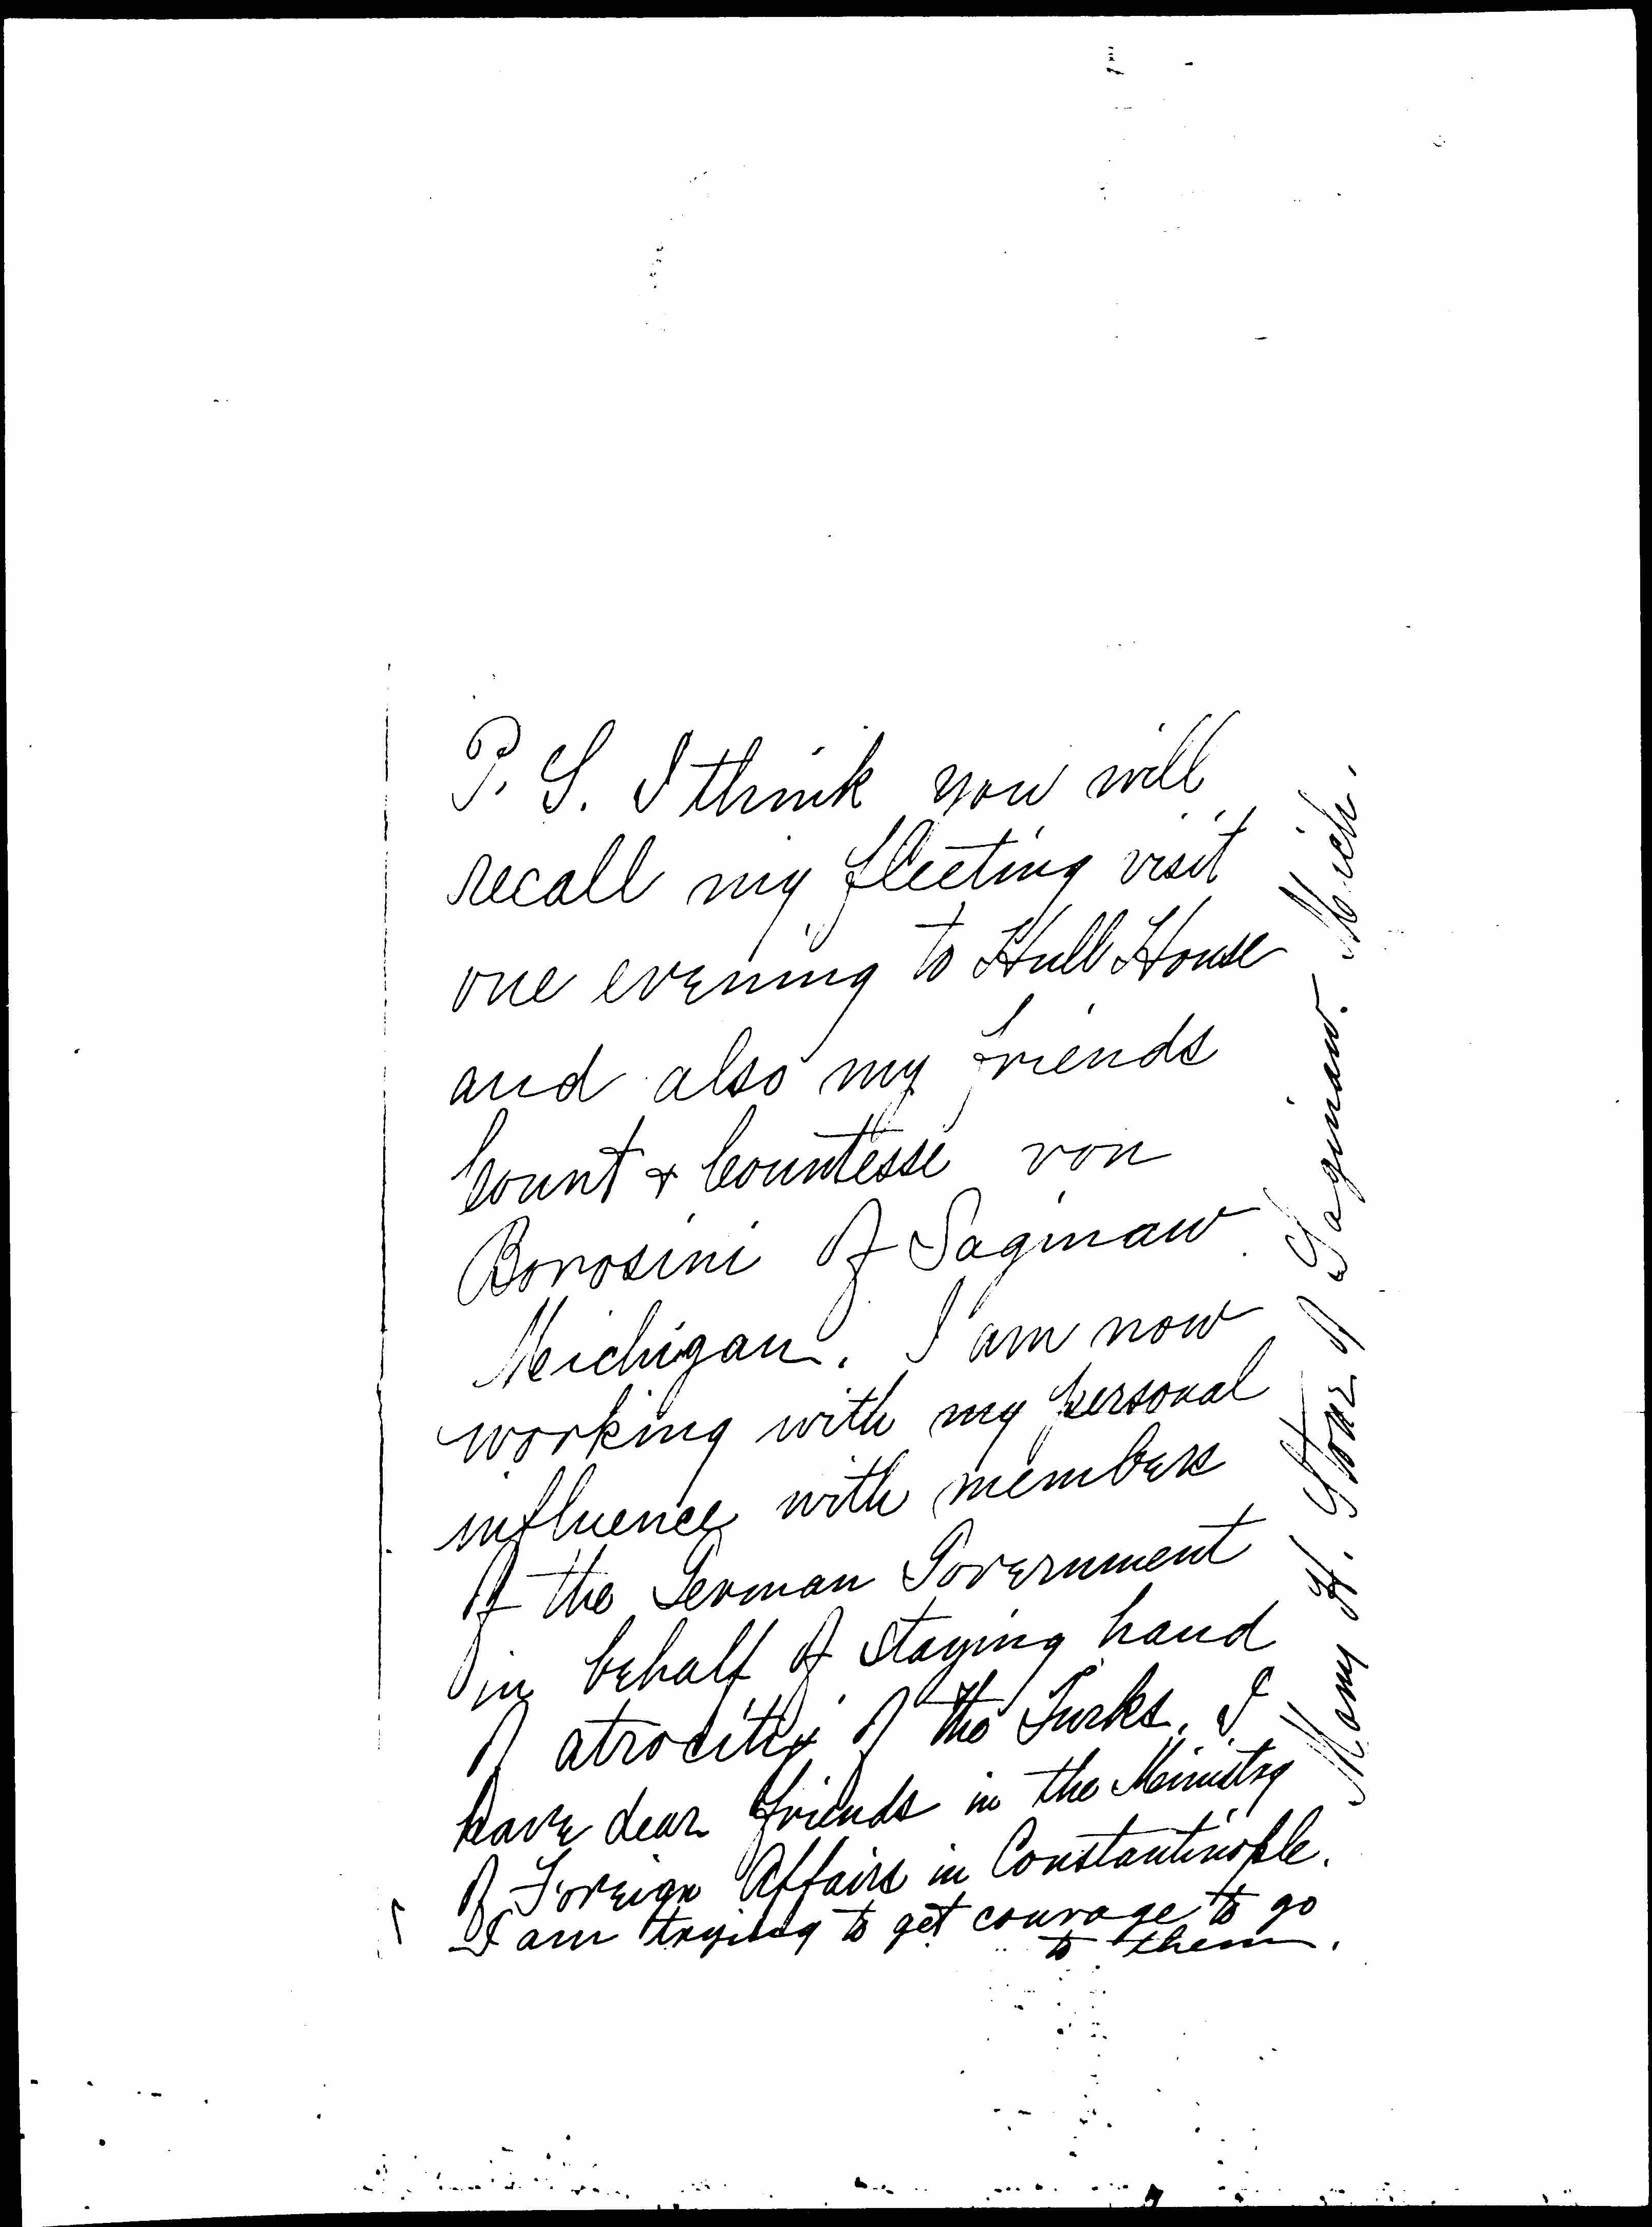 P. S. I think you will
recall my fleeting visit
one evening to Hull House
and also my friends
Count & Countesse von
Borosini of Saginaw
Michigan. I am now
working with my personal
influence with members
of the German Government
in behalf of staying hand
of atrocity of the Turks. I
have dear friends in the Ministry
of Foreign Affairs in Constantinople.
I am trying to get courage to go
to them.
Mary H. Stone of Saginaw. Mich.